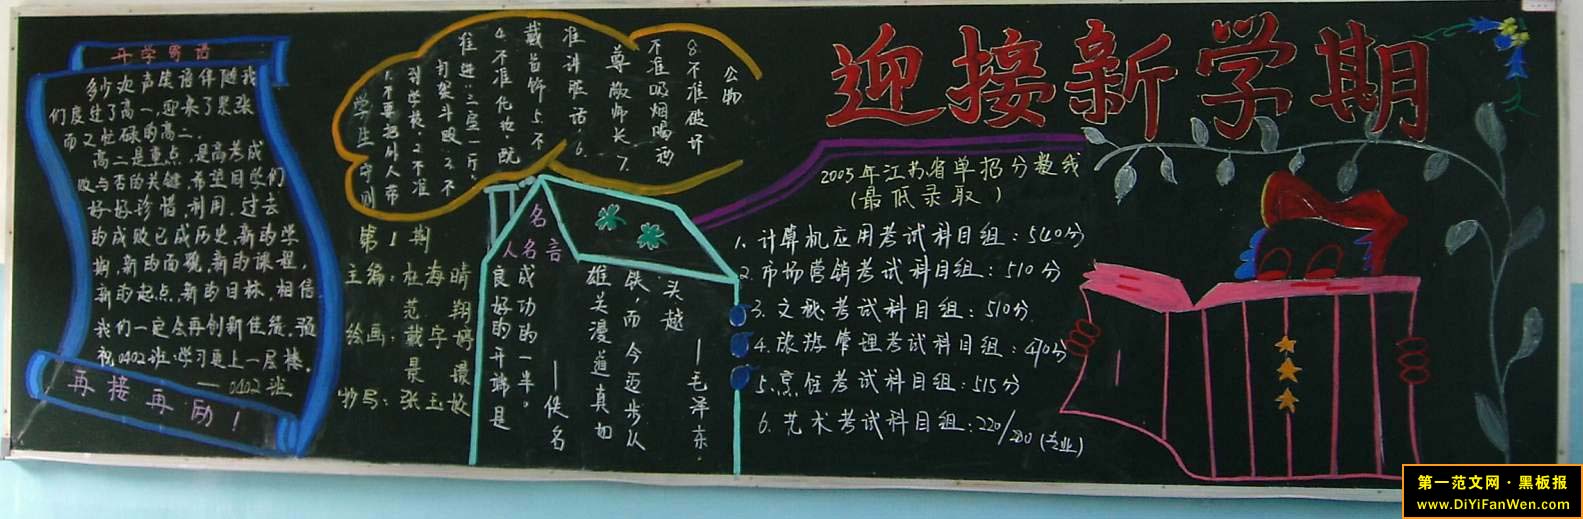 迎接新学期
开学寄语
多少欢声笑语伴随我
们度过了高一,迎来了紧张
而又忙碌的高二.
高二是重点,是高考成
败与否的关键.希望同学们
好好珍惜,利用.过去
的成败已成历史,新的学
期,新的面貌,新的课程,
新的起点,新的目标,相信
我们一定会再创新佳绩.预
祝0402班学习更上一层楼.
——0402班
再接再励!
学生守则
1.不要把外人带
到学校.2.不准
打架斗殴.3.不
准进"三室一厅".
4.不准化妆既
戴首饰.5.不
准讲脏话.6.
尊敬师长.7.
不准吸烟喝酒
8.不准破坏
公物
第1期
主编:杜海晴
范翔
绘画:戴宇婷
景
抄写:张玉敏
名人名言
良好的开端是
成功的一半。
——佚名
雄关漫道真如
铁,而今迈步从
头越
——毛泽东.
2005年江苏省单招分数线
(最低录取)
1.计算机应用考试科目组:540分
2.市场营销考试科目组:510分
3.文秘考试科目组:510分
4.旅游管理考试科目组:490分
5.烹饪考试科目组:515分
6.艺术考试科目组:220/280(专业)
第一范文网·黑板报
www.DiYiFanWen.com